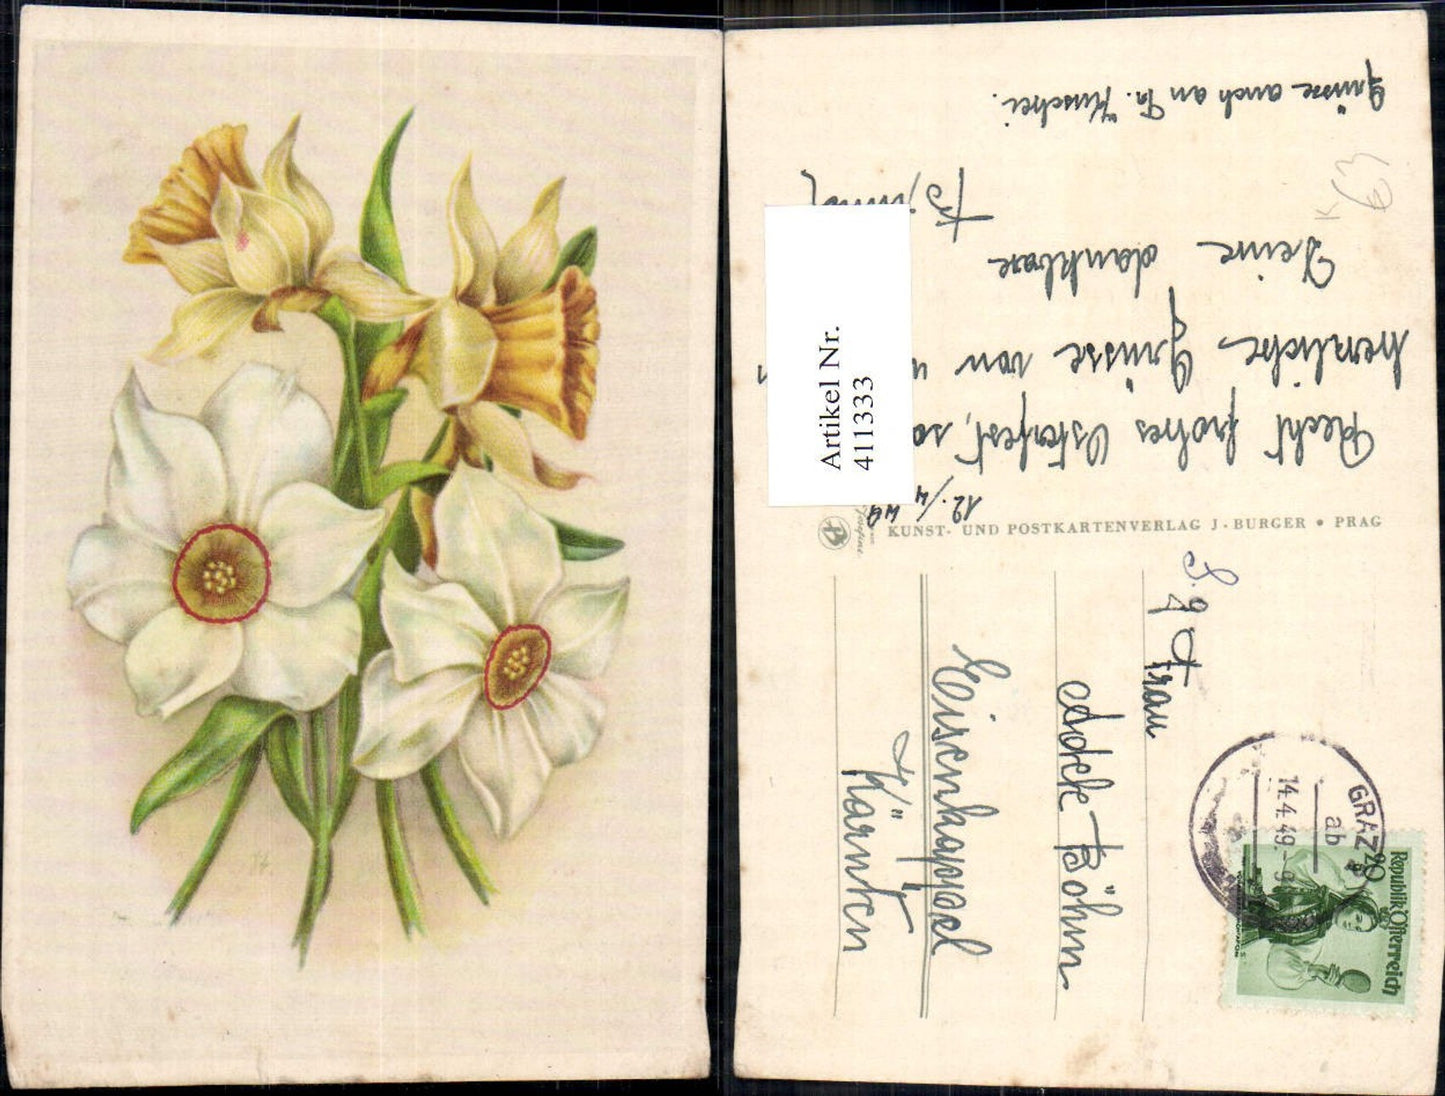 12./4 49
Recht frohes Osterfest, so
herzliche Grüsse von
Deine dankbare
Grüsse auch an Fr.
Artikel Nr.
411333
KUNST- UND POSTKARTENVERLAG J. BURGER • PRAG
S. g.
Frau
Adele Böhm
Eisenkappel
Kärnten
GRAZ
ab
14.4.49.-9
20
Republik Österreich